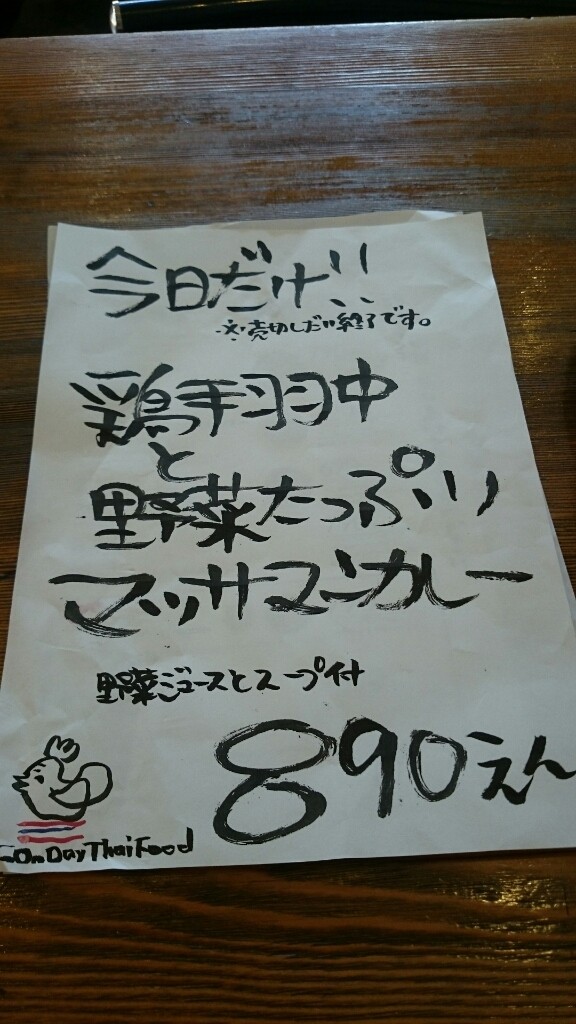 今日だけ!!
※売切しだい終了です。
鶏手羽中
と
野菜たっぷり
マッサマンカレー
野菜ジュースとスープ付
890えん
OnDayThaiFood